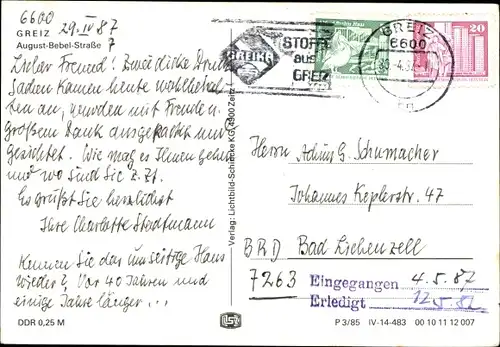 6600
GREIZ 29.IV 87
August-Bebel-Straße 7
Lieber Freund! Ihre dicke Druck
sachen kamen heute wohlbehal-
ten an, wurden mit Freude u.
Großem Dank ausgepackt und
gesichtet. Wie mag es Ihnen gehn
und wo sind Sie z.Zt.
Es grüßt Sie herzlichst
Ihre Charlotte Stadtmann
Kennen Sie das umseitige Haus
wieder? Vor 40 Jahren und
einige Jahre länger ...
DDR 0,25 M
Verlag: Lichtbild-Schincke KG, 4900 Zeitz
GREIKA
STOFFE
aus
GREIZ
GREIZ
6600
30.-4.87
20
Herrn Achim G. Schumacher
Johannes Keplerstr. 47
BRD Bad Liebenzell
7263
Eingegangen 4.5.87
Erledigt 12.5.87
P 3/85 IV-14-483 00 10 11 12 007